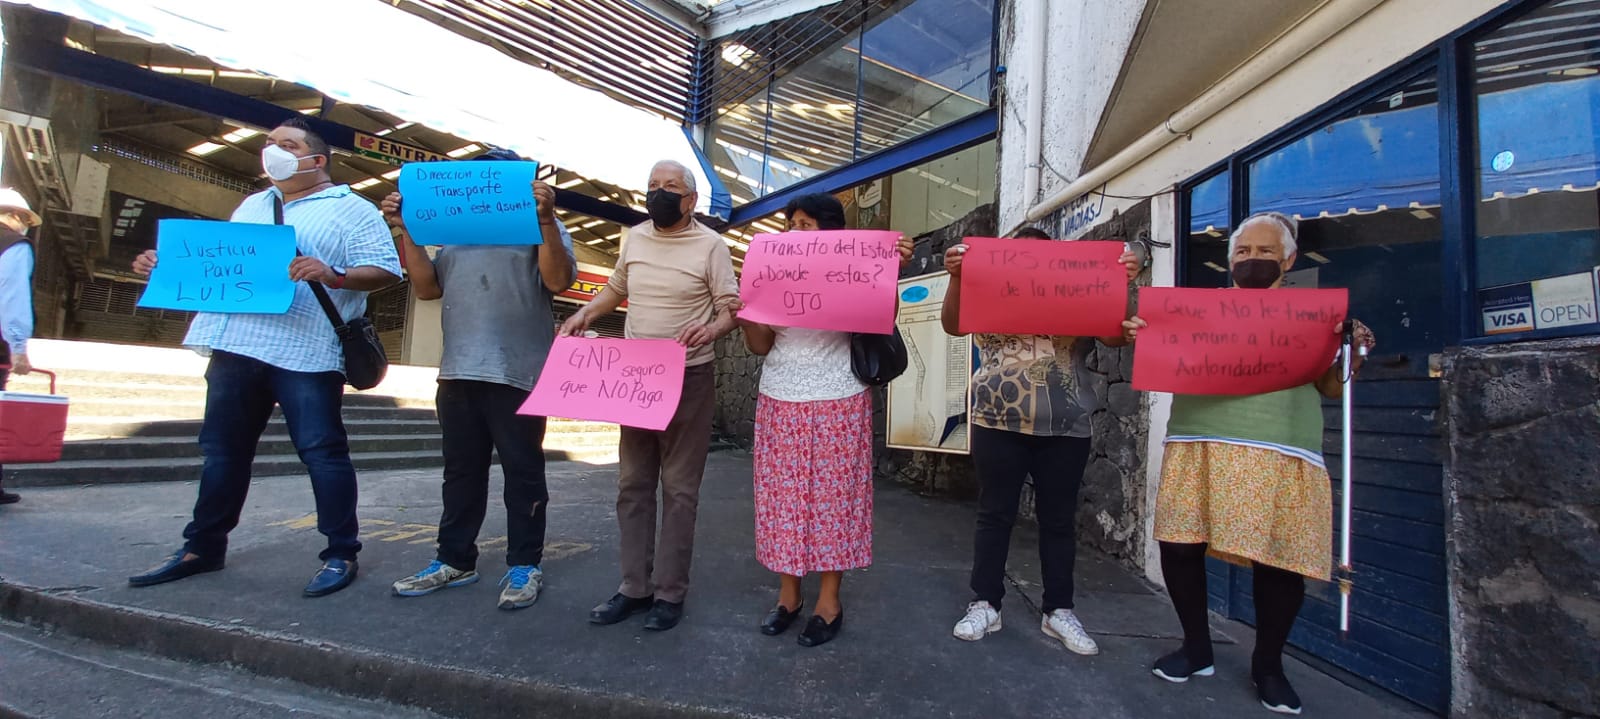 Justicia
Para
LUIS
Dirección de
Transporte
OJO con este asunto
GNP seguro
que NO Paga
Transito del Estado
¿Dónde estas?
OJO
TRS camiones
de la muerte
Que No le tiemble
la mano a las
Autoridades
ENTRA
VACIAS
VISA
OPEN